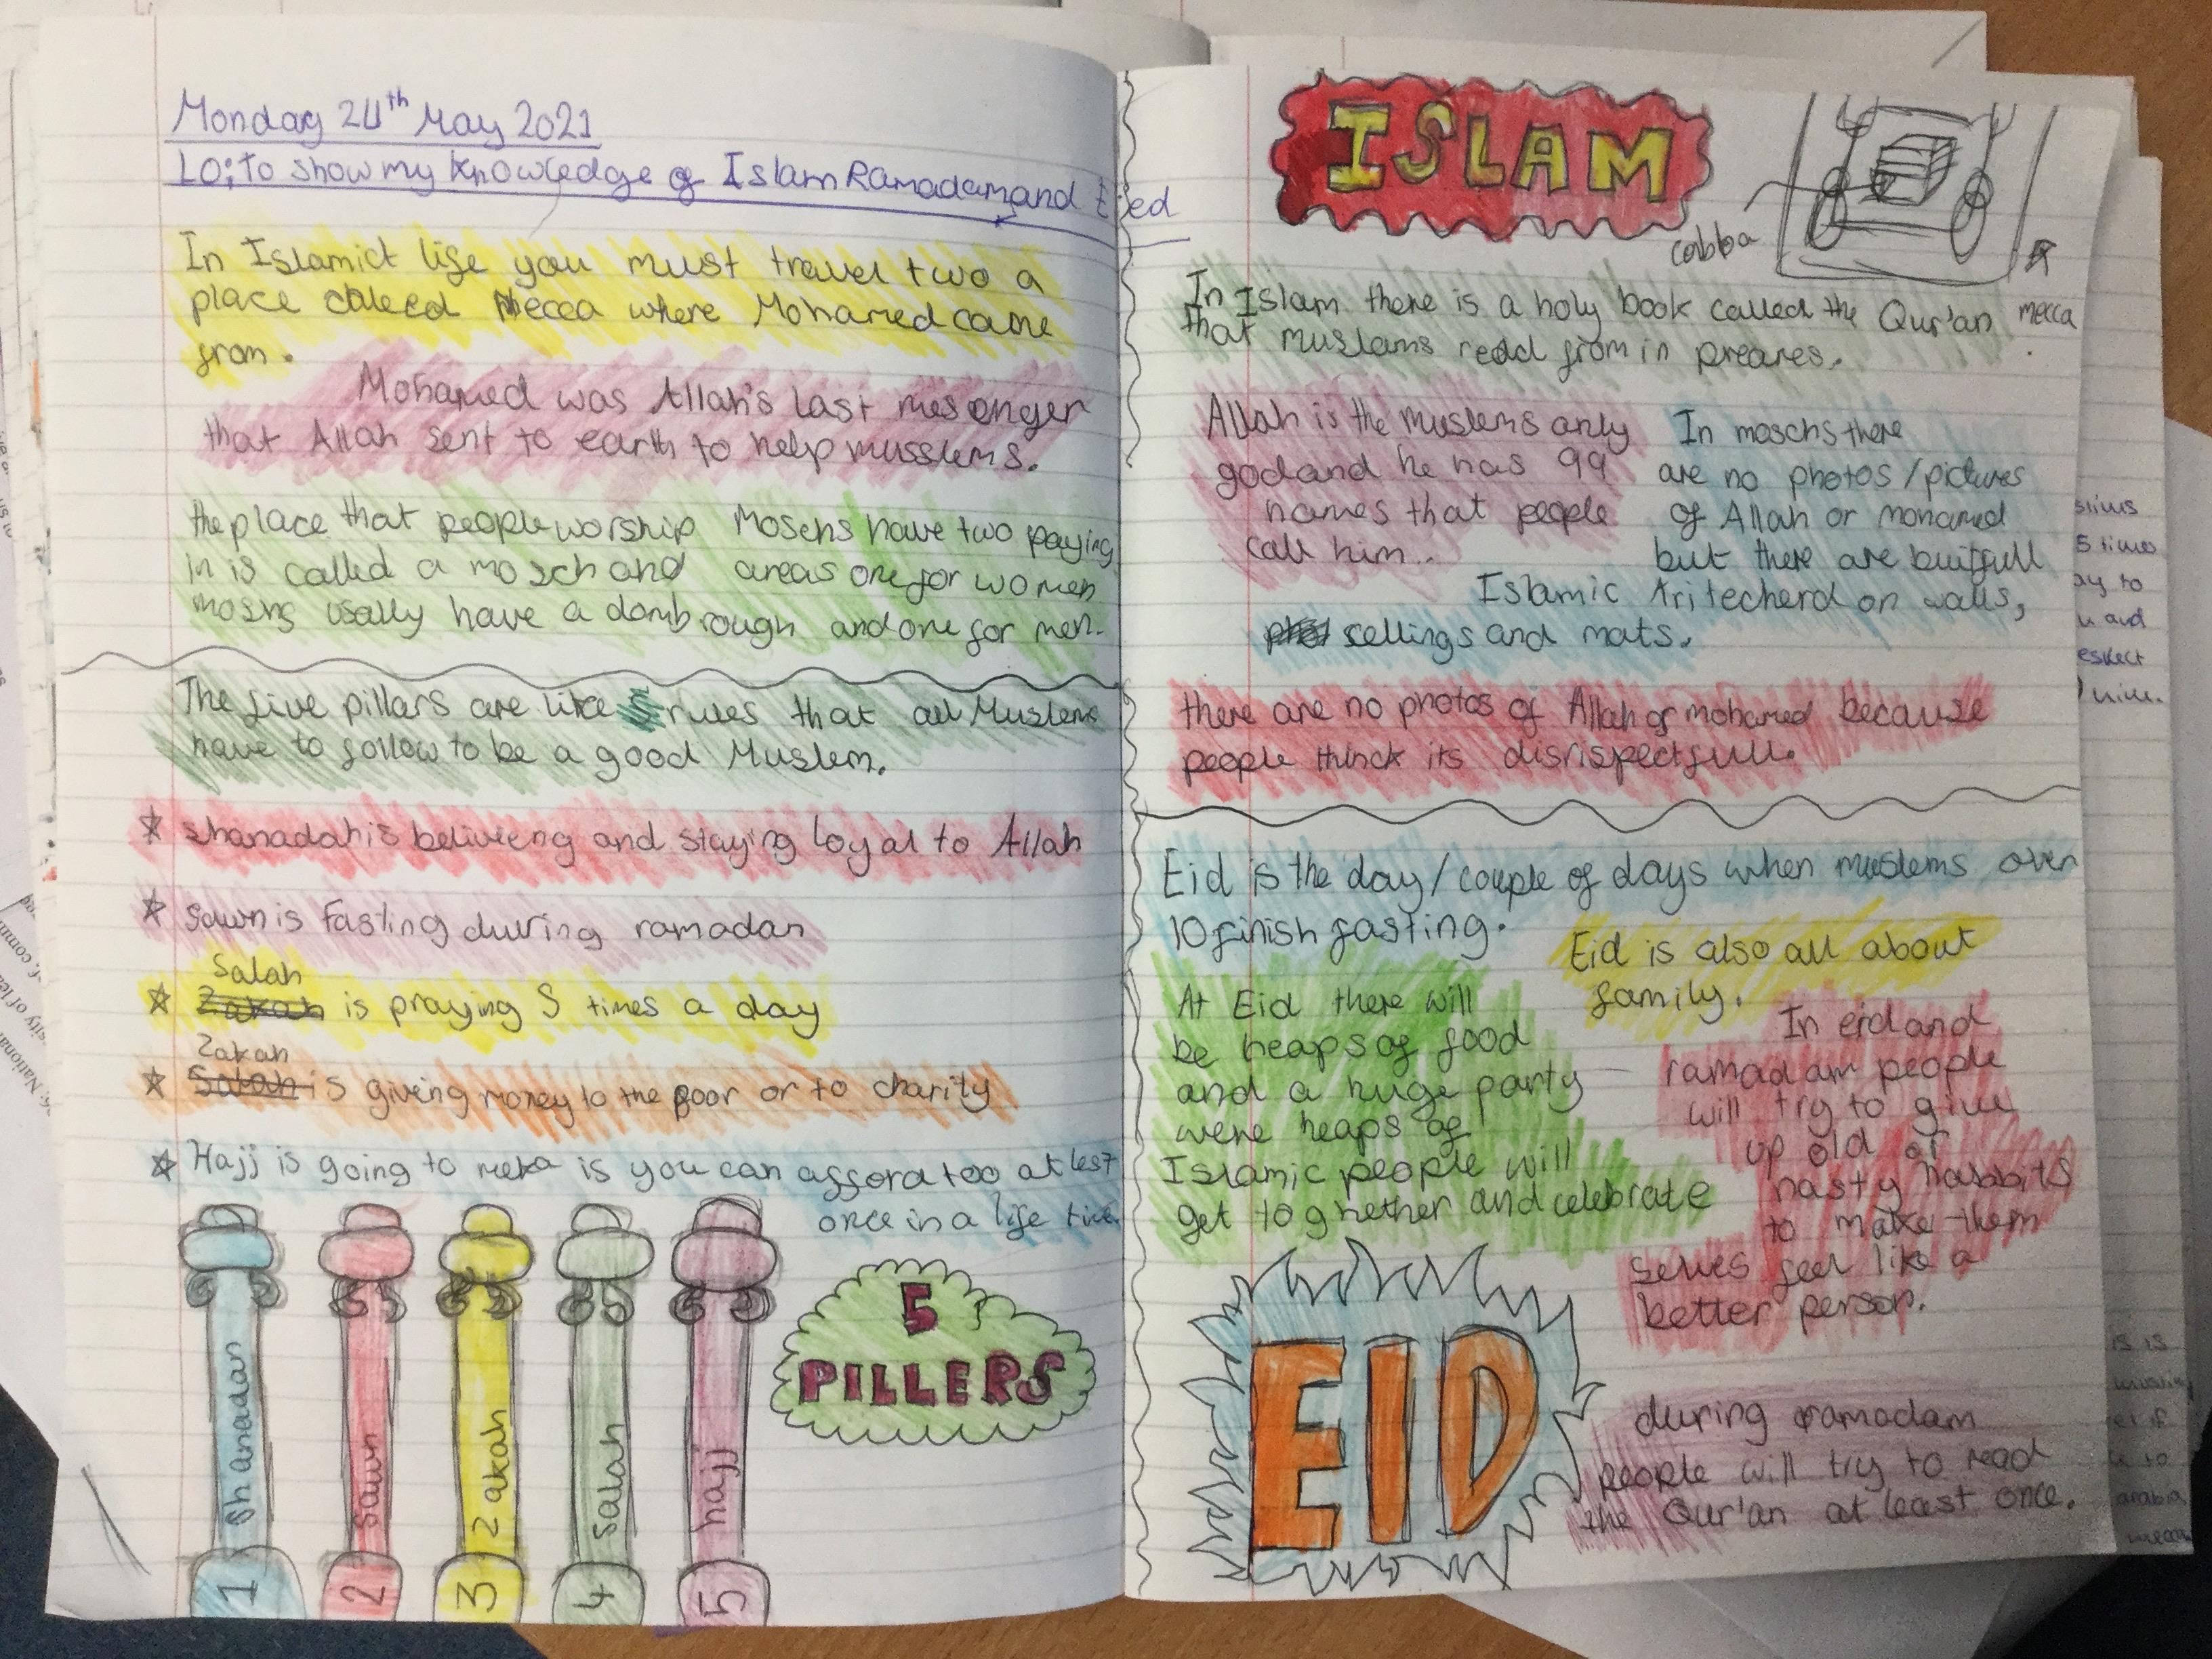 Monday 24th May 2021
LO; to show my knowledge of Islam Ramadam and Eied
In Islamict life you must travel two a
place caleed Mecca where Mohamed came
from.
Mohamed was Allah's last mesenger
that Allah sent to earth to help musslems.
the place that people worship
in is called a mosch and
moshs usally have a domb rough
Moschs have two paying
areas one for women
and one for men.
The five pillars are like rules that all Muslems
have to follow to be a good Muslem.
☆ shanadah is beliveeng and staying loyal to Allah
☆ sawn is fasting during ramadan
Salah
☆ Zakah is praying 5 times a day
Zakah
☆ Salah is giving money to the poor or to charity
☆ Hajj is going to meka is you can afford too at lest
once in a life time
Shanadan
sawn
zakah
salah
hajj
1
2
3
4
5
5
PILLERS
ISLAM
cabba
mecca
In Islam there is a holy book called the Qur'an
that muslams read from in preares.
Allah is the muslems only
god and he has 99
names that people
call him..
In moschs there
are no photos/pictures
of Allah or mohamed
but there are buitfull
Islamic Aritecherd on walls,
sellings and mats.
there are no photos of Allah or mohamed because
people thinck its disrispectfull.
Eid is the day/couple of days when muslems over
10 finish fasting.
Eid is also all about
family.
At Eid there will
be heaps of food
and a huge party
were heaps of
Islamic people will
get to ghether and celebrate
In eid and
ramadam people
will try to give
up old or
nasty habbits
to make them
selves feel like a
better person.
EID
during ramadam
people will try to read
the Qur'an at least once.
5 times
ay to
u and
is is
arabia